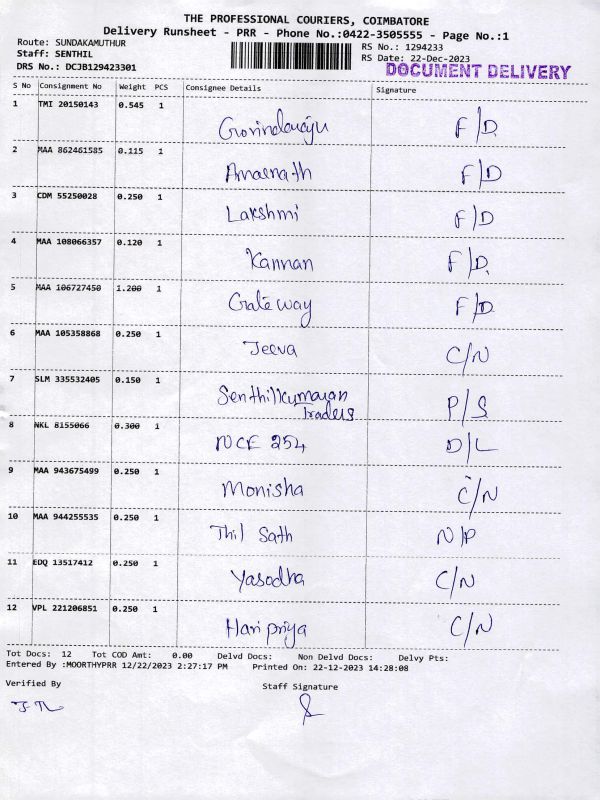 THE PROFESSIONAL COURIERS, COIMBATORE
Delivery Runsheet - PRR - Phone No.:0422-3505555 - Page No.:1
Route: SUNDAKAMUTHUR
RS No.: 1294233
Staff: SENTHIL
RS Date: 22-Dec-2023
DRS No.: DCJB129423301
DOCUMENT DELIVERY
S No Consignment No Weight PCS Consignee Details Signature
1 TMI 20150143 0.545 1 Govindaraju F/D
2 MAA 862461585 0.115 1 Amarnath F/D
3 CDM 55250028 0.250 1 Lakshmi F/D
4 MAA 108066357 0.120 1 Kannan F/D
5 MAA 106727450 1.200 1 Gateway F/D
6 MAA 105358868 0.250 1 Jeeva C/N
7 SLM 335532405 0.150 1 Senthilkumaran Traders P/S
8 NKL 8155066 0.300 1 NCE 254 D/L
9 MAA 943675499 0.250 1 Monisha C/N
10 MAA 944255535 0.250 1 Thil Sath N/P
11 EDQ 13517412 0.250 1 Yasodha C/N
12 VPL 221206851 0.250 1 Haripriya C/N
Tot Docs: 12 Tot COD Amt: 0.00 Delvd Docs: Non Delvd Docs: Delvy Pts:
Entered By :MOORTHYPRR 12/22/2023 2:27:17 PM Printed On: 22-12-2023 14:28:08
Verified By Staff Signature